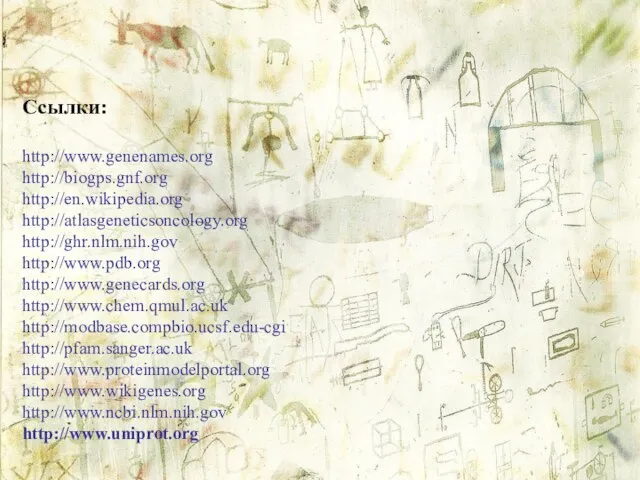 Ссылки:
http://www.genenames.org
http://biogps.gnf.org
http://en.wikipedia.org
http://atlasgeneticsoncology.org
http://ghr.nlm.nih.gov
http://www.pdb.org
http://www.genecards.org
http://www.chem.qmul.ac.uk
http://modbase.compbio.ucsf.edu-cgi
http://pfam.sanger.ac.uk
http://www.proteinmodelportal.org
http://www.wikigenes.org
http://www.ncbi.nlm.nih.gov
http://www.uniprot.org